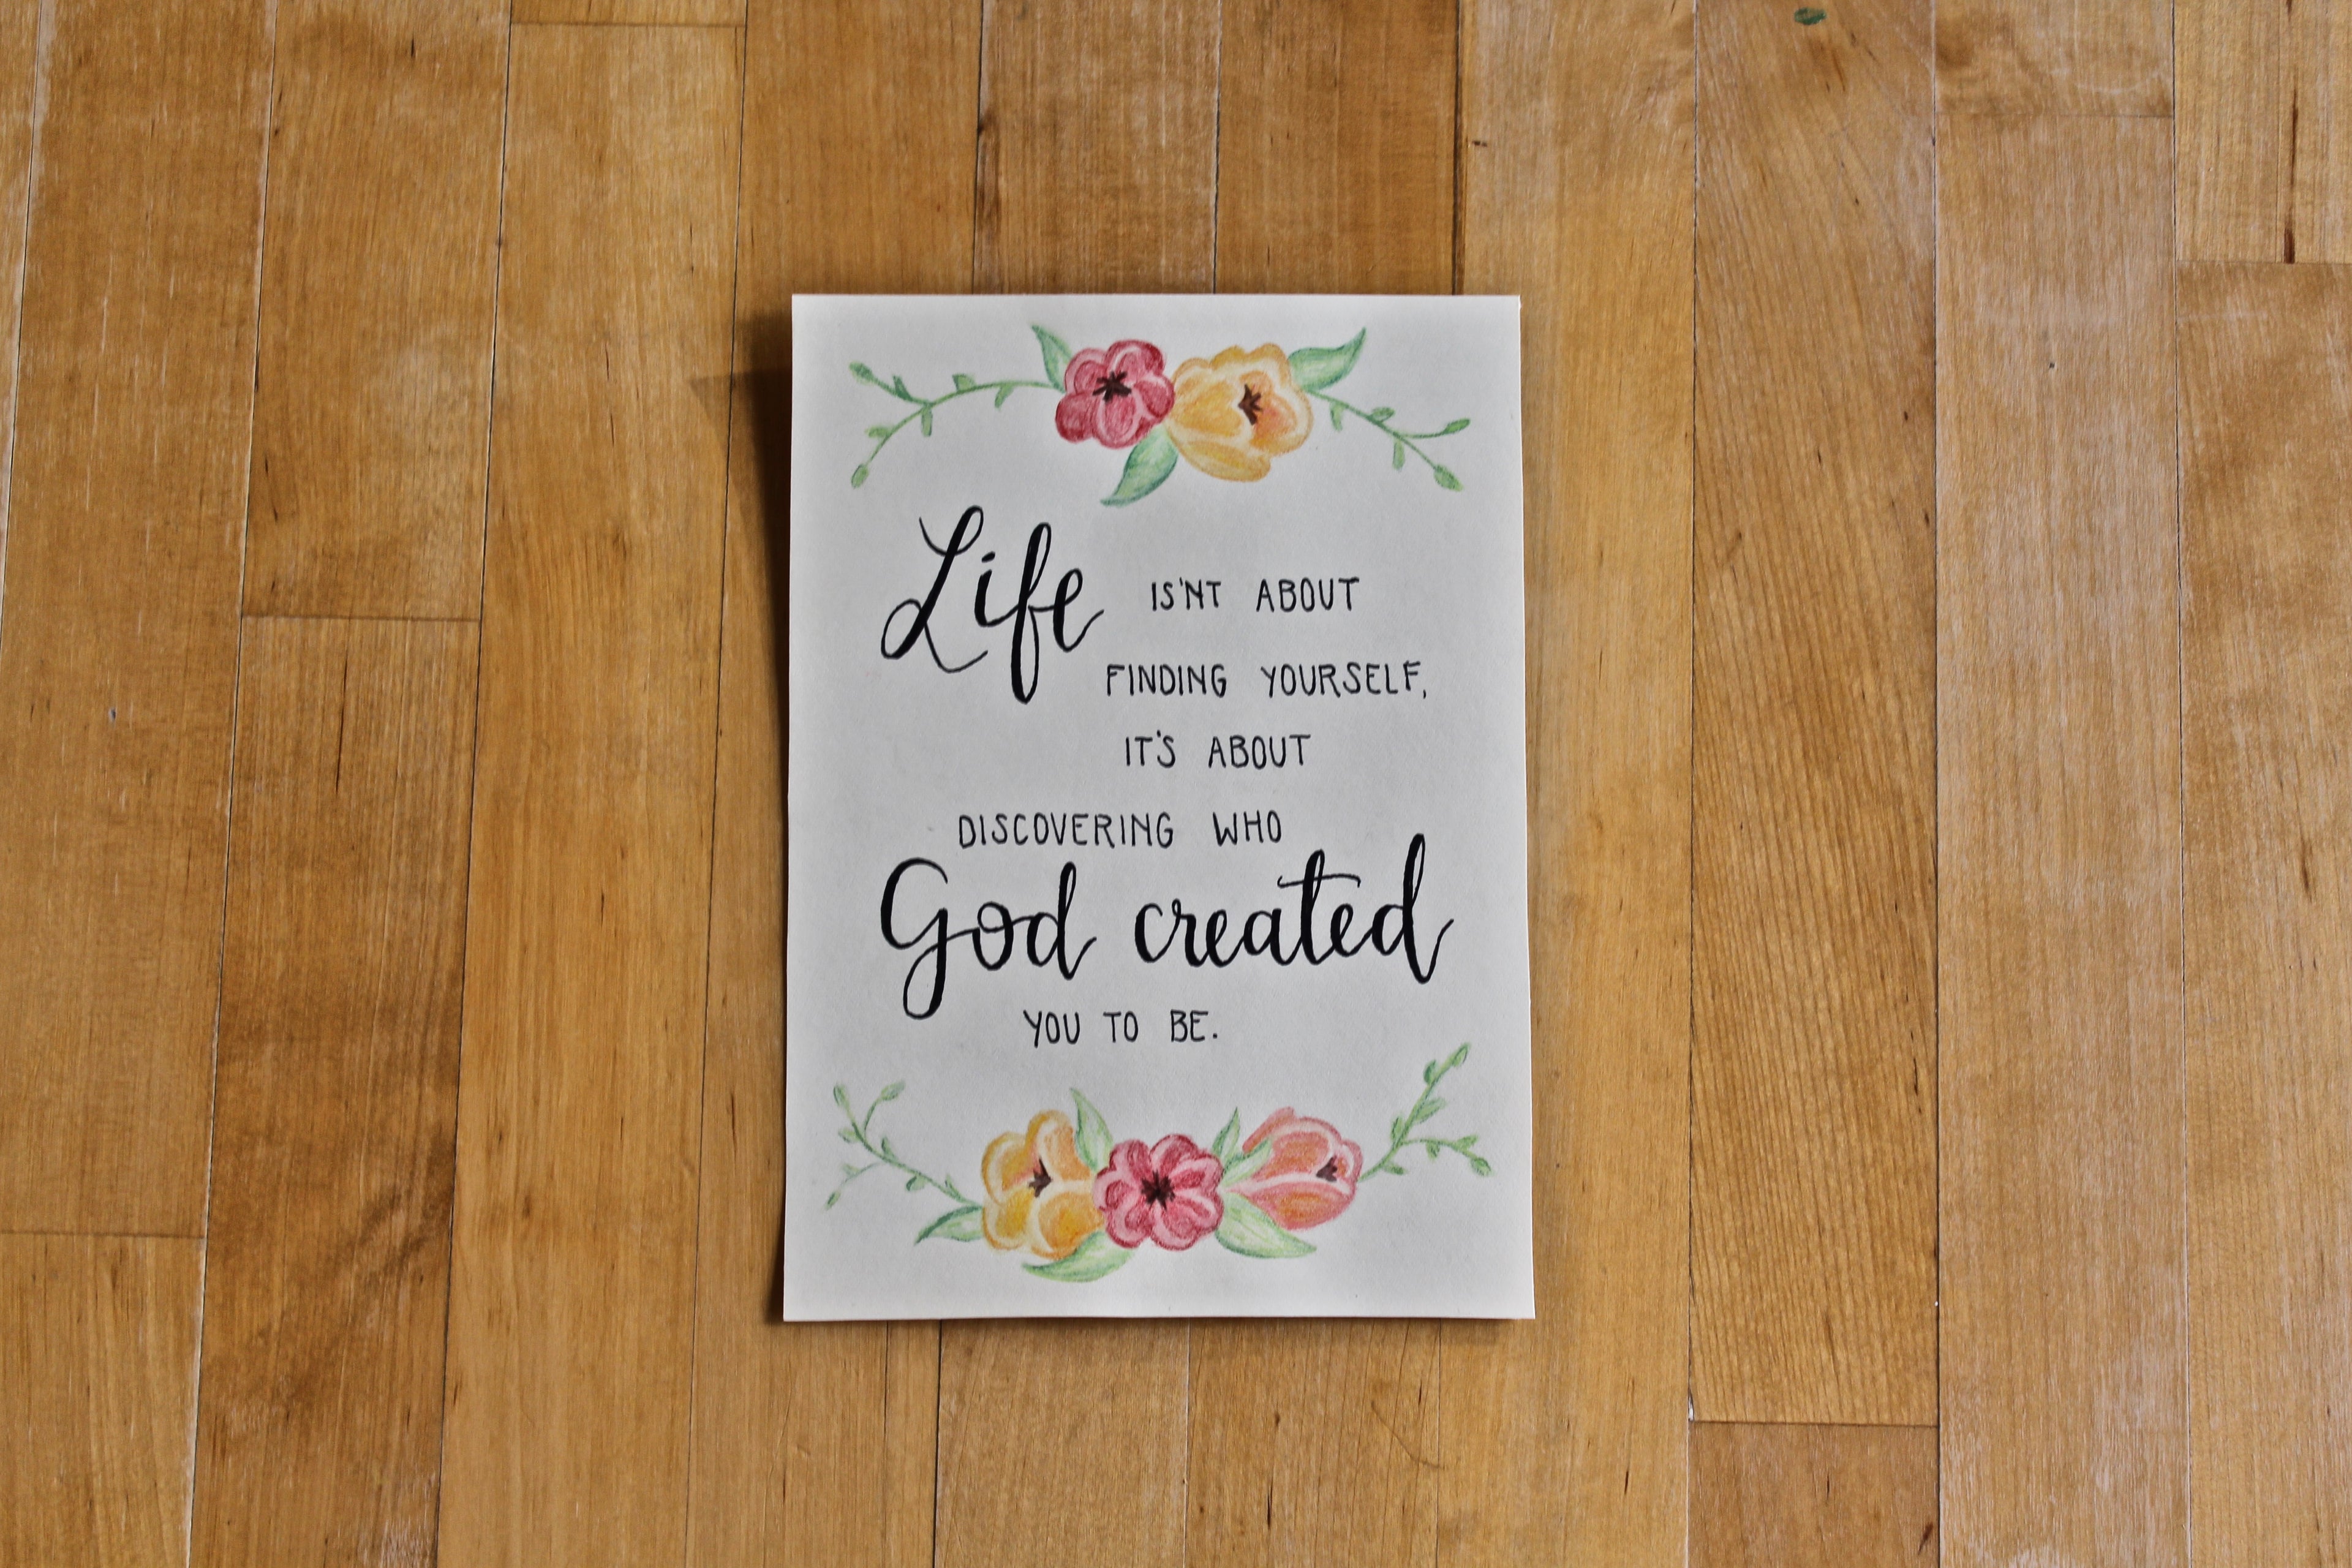 Life IS'NT ABOUT
FINDING YOURSELF,
IT'S ABOUT
DISCOVERING WHO
God created
YOU TO BE.